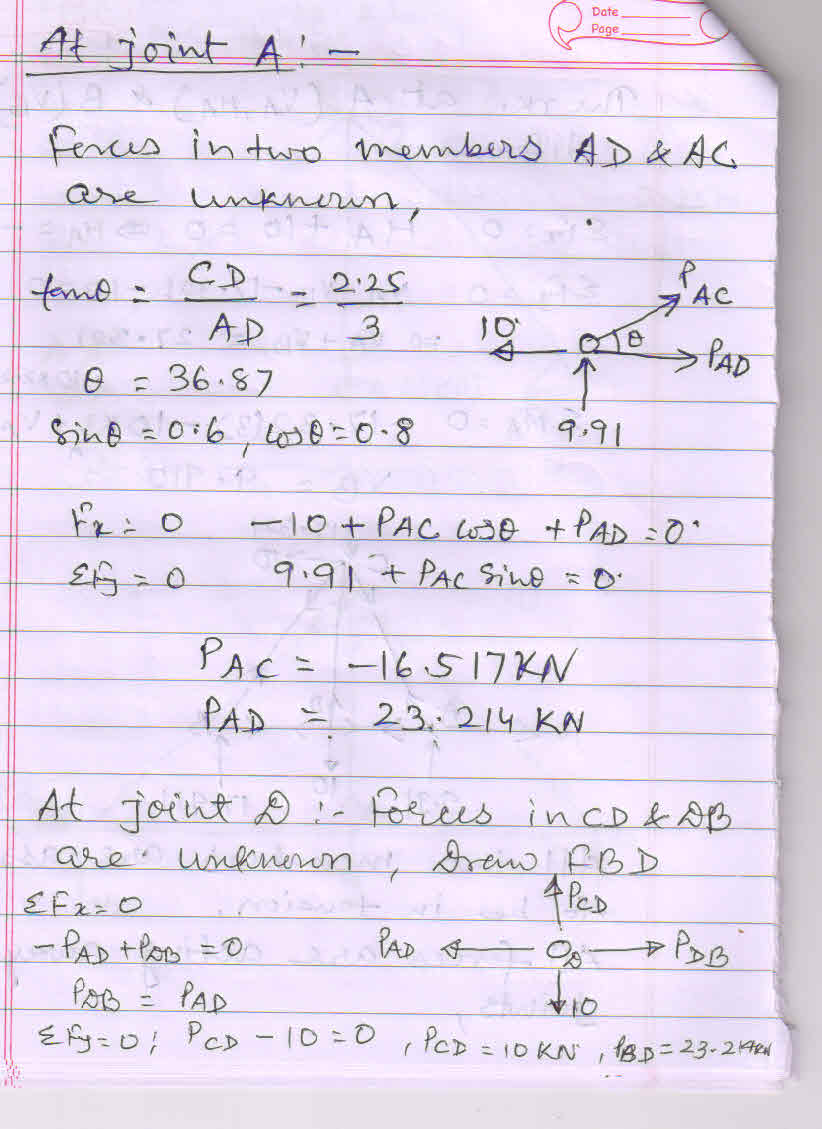 Date
Page
At joint A :-
Forces in two members AD & AC
are unknown,
tanθ = CD/AD = 2.25/3
θ = 36.87
sinθ = 0.6, cosθ = 0.8
10
PAC
θ
PAD
9.91
Fx = 0 -10 + PAC cosθ + PAD = 0
ΣFy = 0 9.91 + PAC sinθ = 0
PAC = -16.517 KN
PAD = 23.214 KN
At joint D :- Forces in CD & DB
are unknown, Draw FBD
ΣFx = 0
-PAD + PDB = 0
PDB = PAD
PCD
PAD
D
PDB
10
ΣFy = 0; PCD - 10 = 0, PCD = 10 KN, PBD = 23.214KN